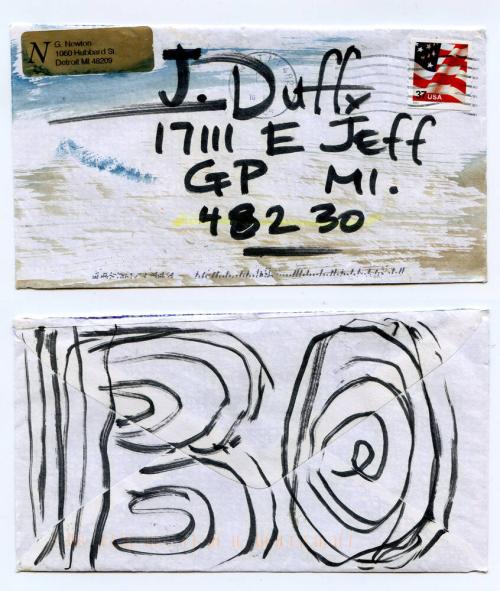 N
G. Newton
1060 Hubbard St.
Detroit MI 48209
37 USA
J. Duffy
17111 E Jeff
GP MI.
48230
BO